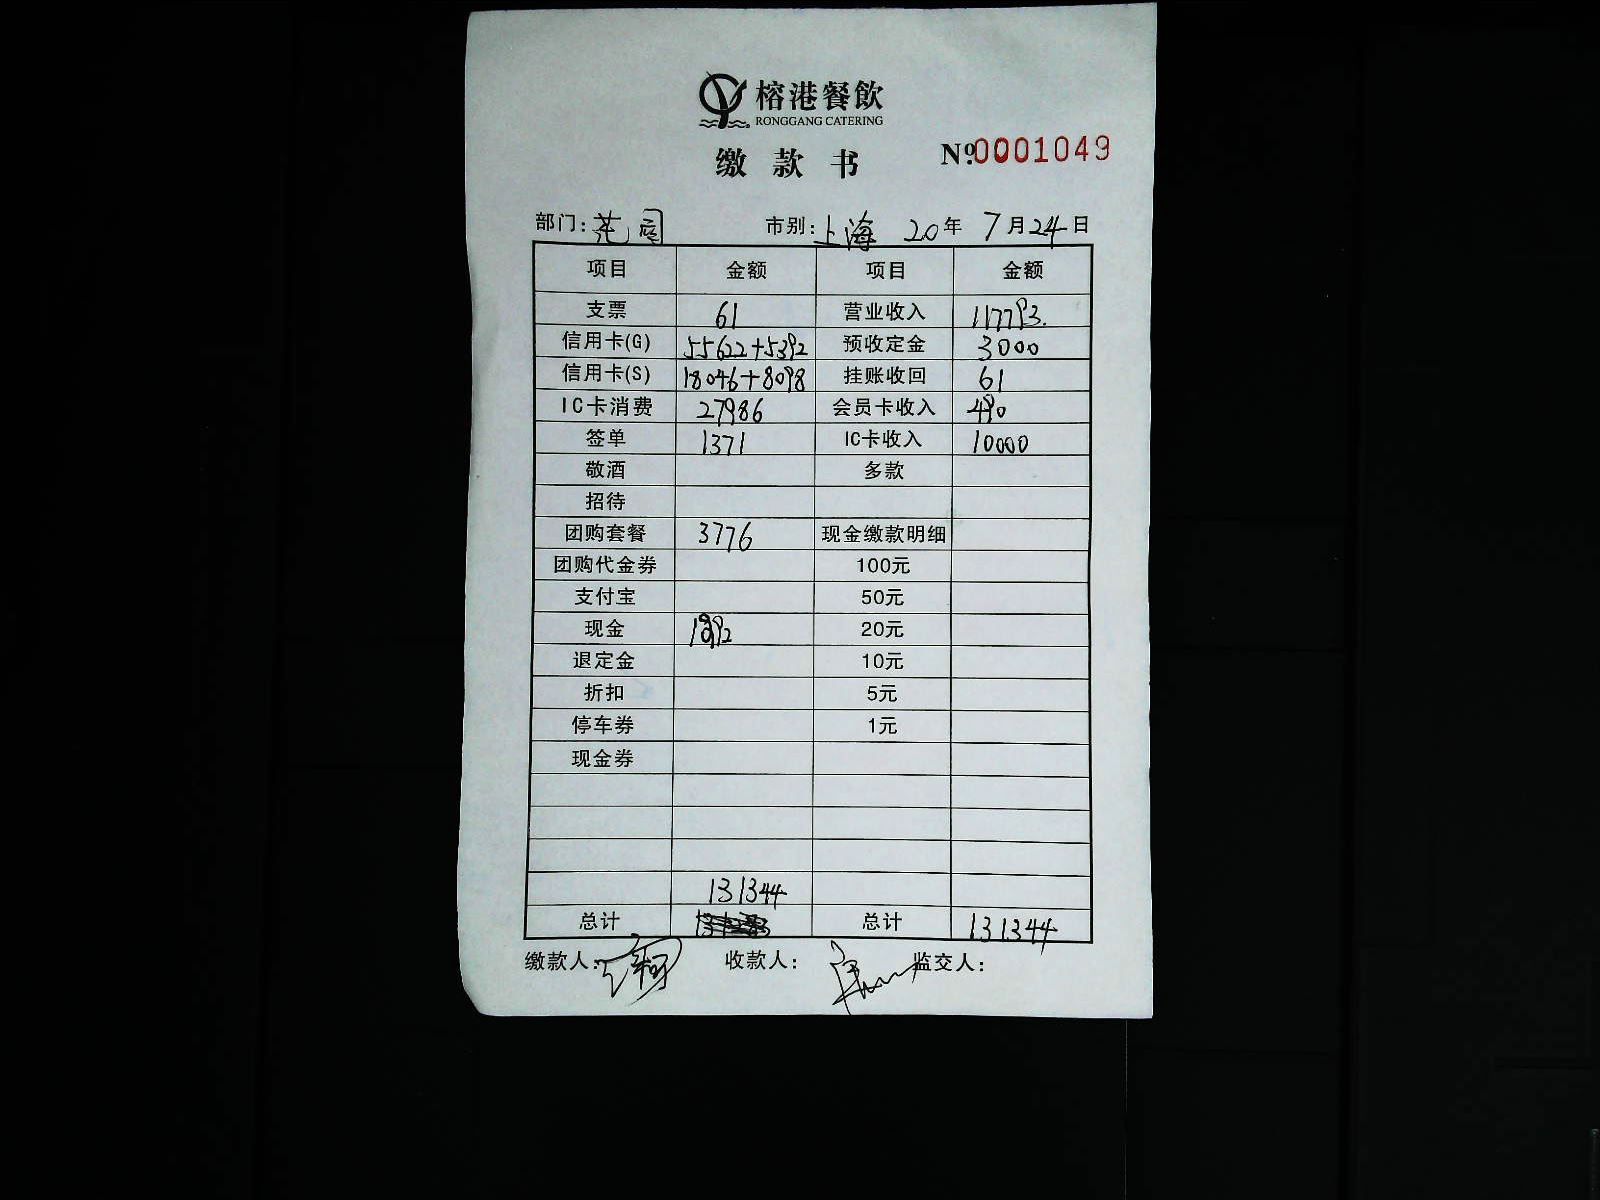 榕港餐飲
RONGGANG CATERING
缴款书 Nº:0001049
部门: 市别: 上海 20年 7月24日
项目 金额 项目 金额
支票 61 营业收入 117793.
信用卡(G) 55622+5392 预收定金 3000
信用卡(S) 18046+8098 挂账收回 61
IC卡消费 27986 会员卡收入 490
签单 1371 IC卡收入 10000
敬酒 多款
招待
团购套餐 3776 现金缴款明细
团购代金券 100元
支付宝 50元
现金 10992 20元
退定金 10元
折扣 5元
停车券 1元
现金券
131344
总计 总计 131344
缴款人: 收款人: 监交人: